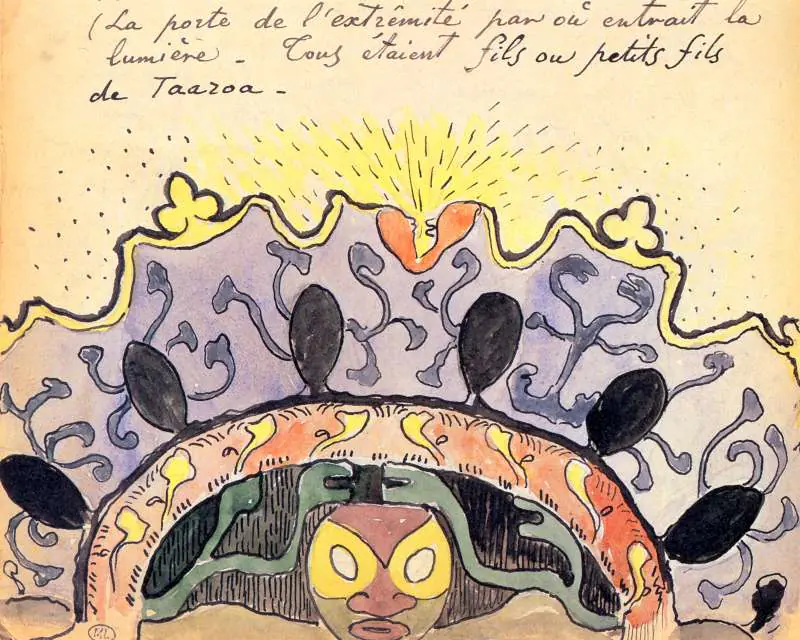 (La porte de l'extrêmité par où entrait la
lumière - Tous étaient fils ou petits fils
de Taaroa -